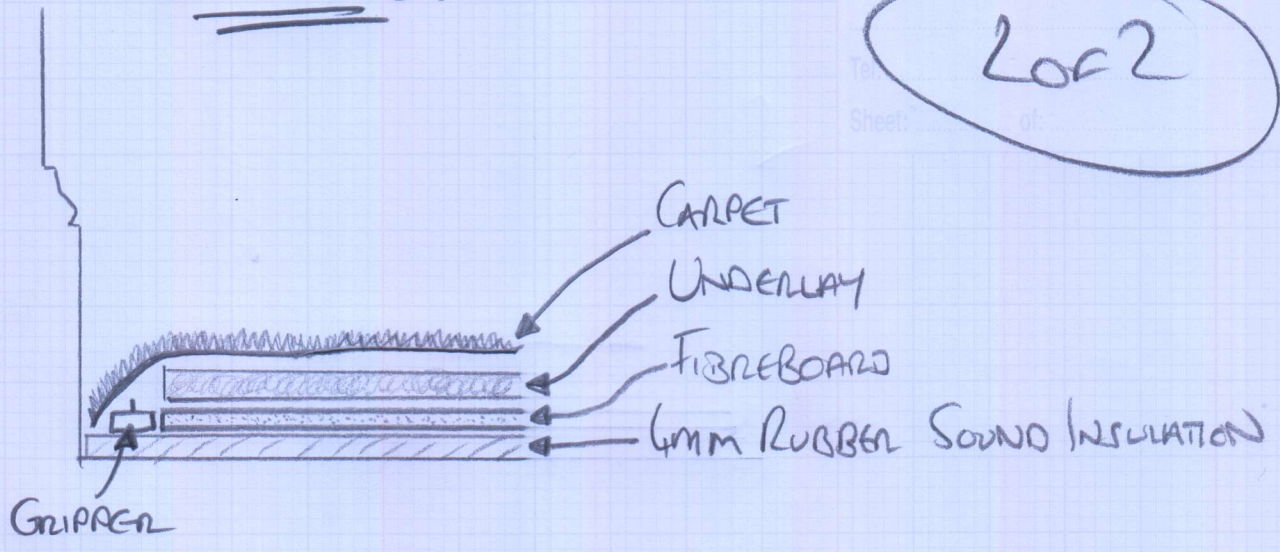 2 of 2
Tel:
Sheet: of:
CARPET
UNDERLAY
FIBREBOARD
4mm RUBBER SOUND INSULATION
GRIPPER